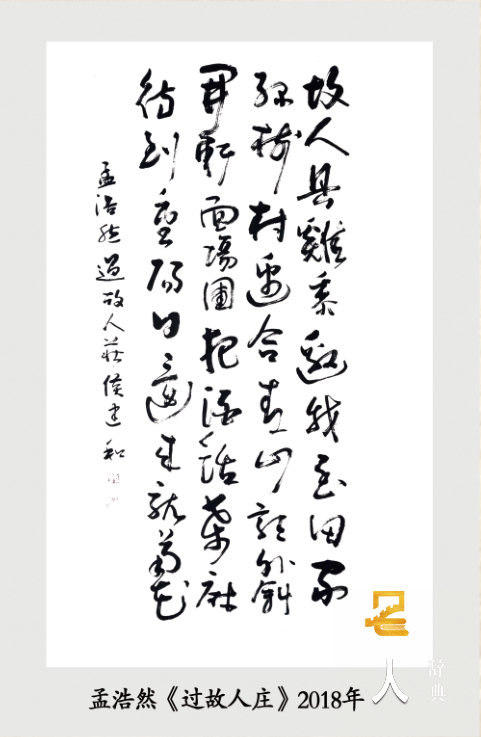 故人具雞黍邀我至田家
綠樹村邊合青山郭外斜
開軒面場圃把酒話桑麻
待到重陽日還來就菊花
孟浩然過故人莊侯建和
孟浩然《过故人庄》2018年
名人
辞典